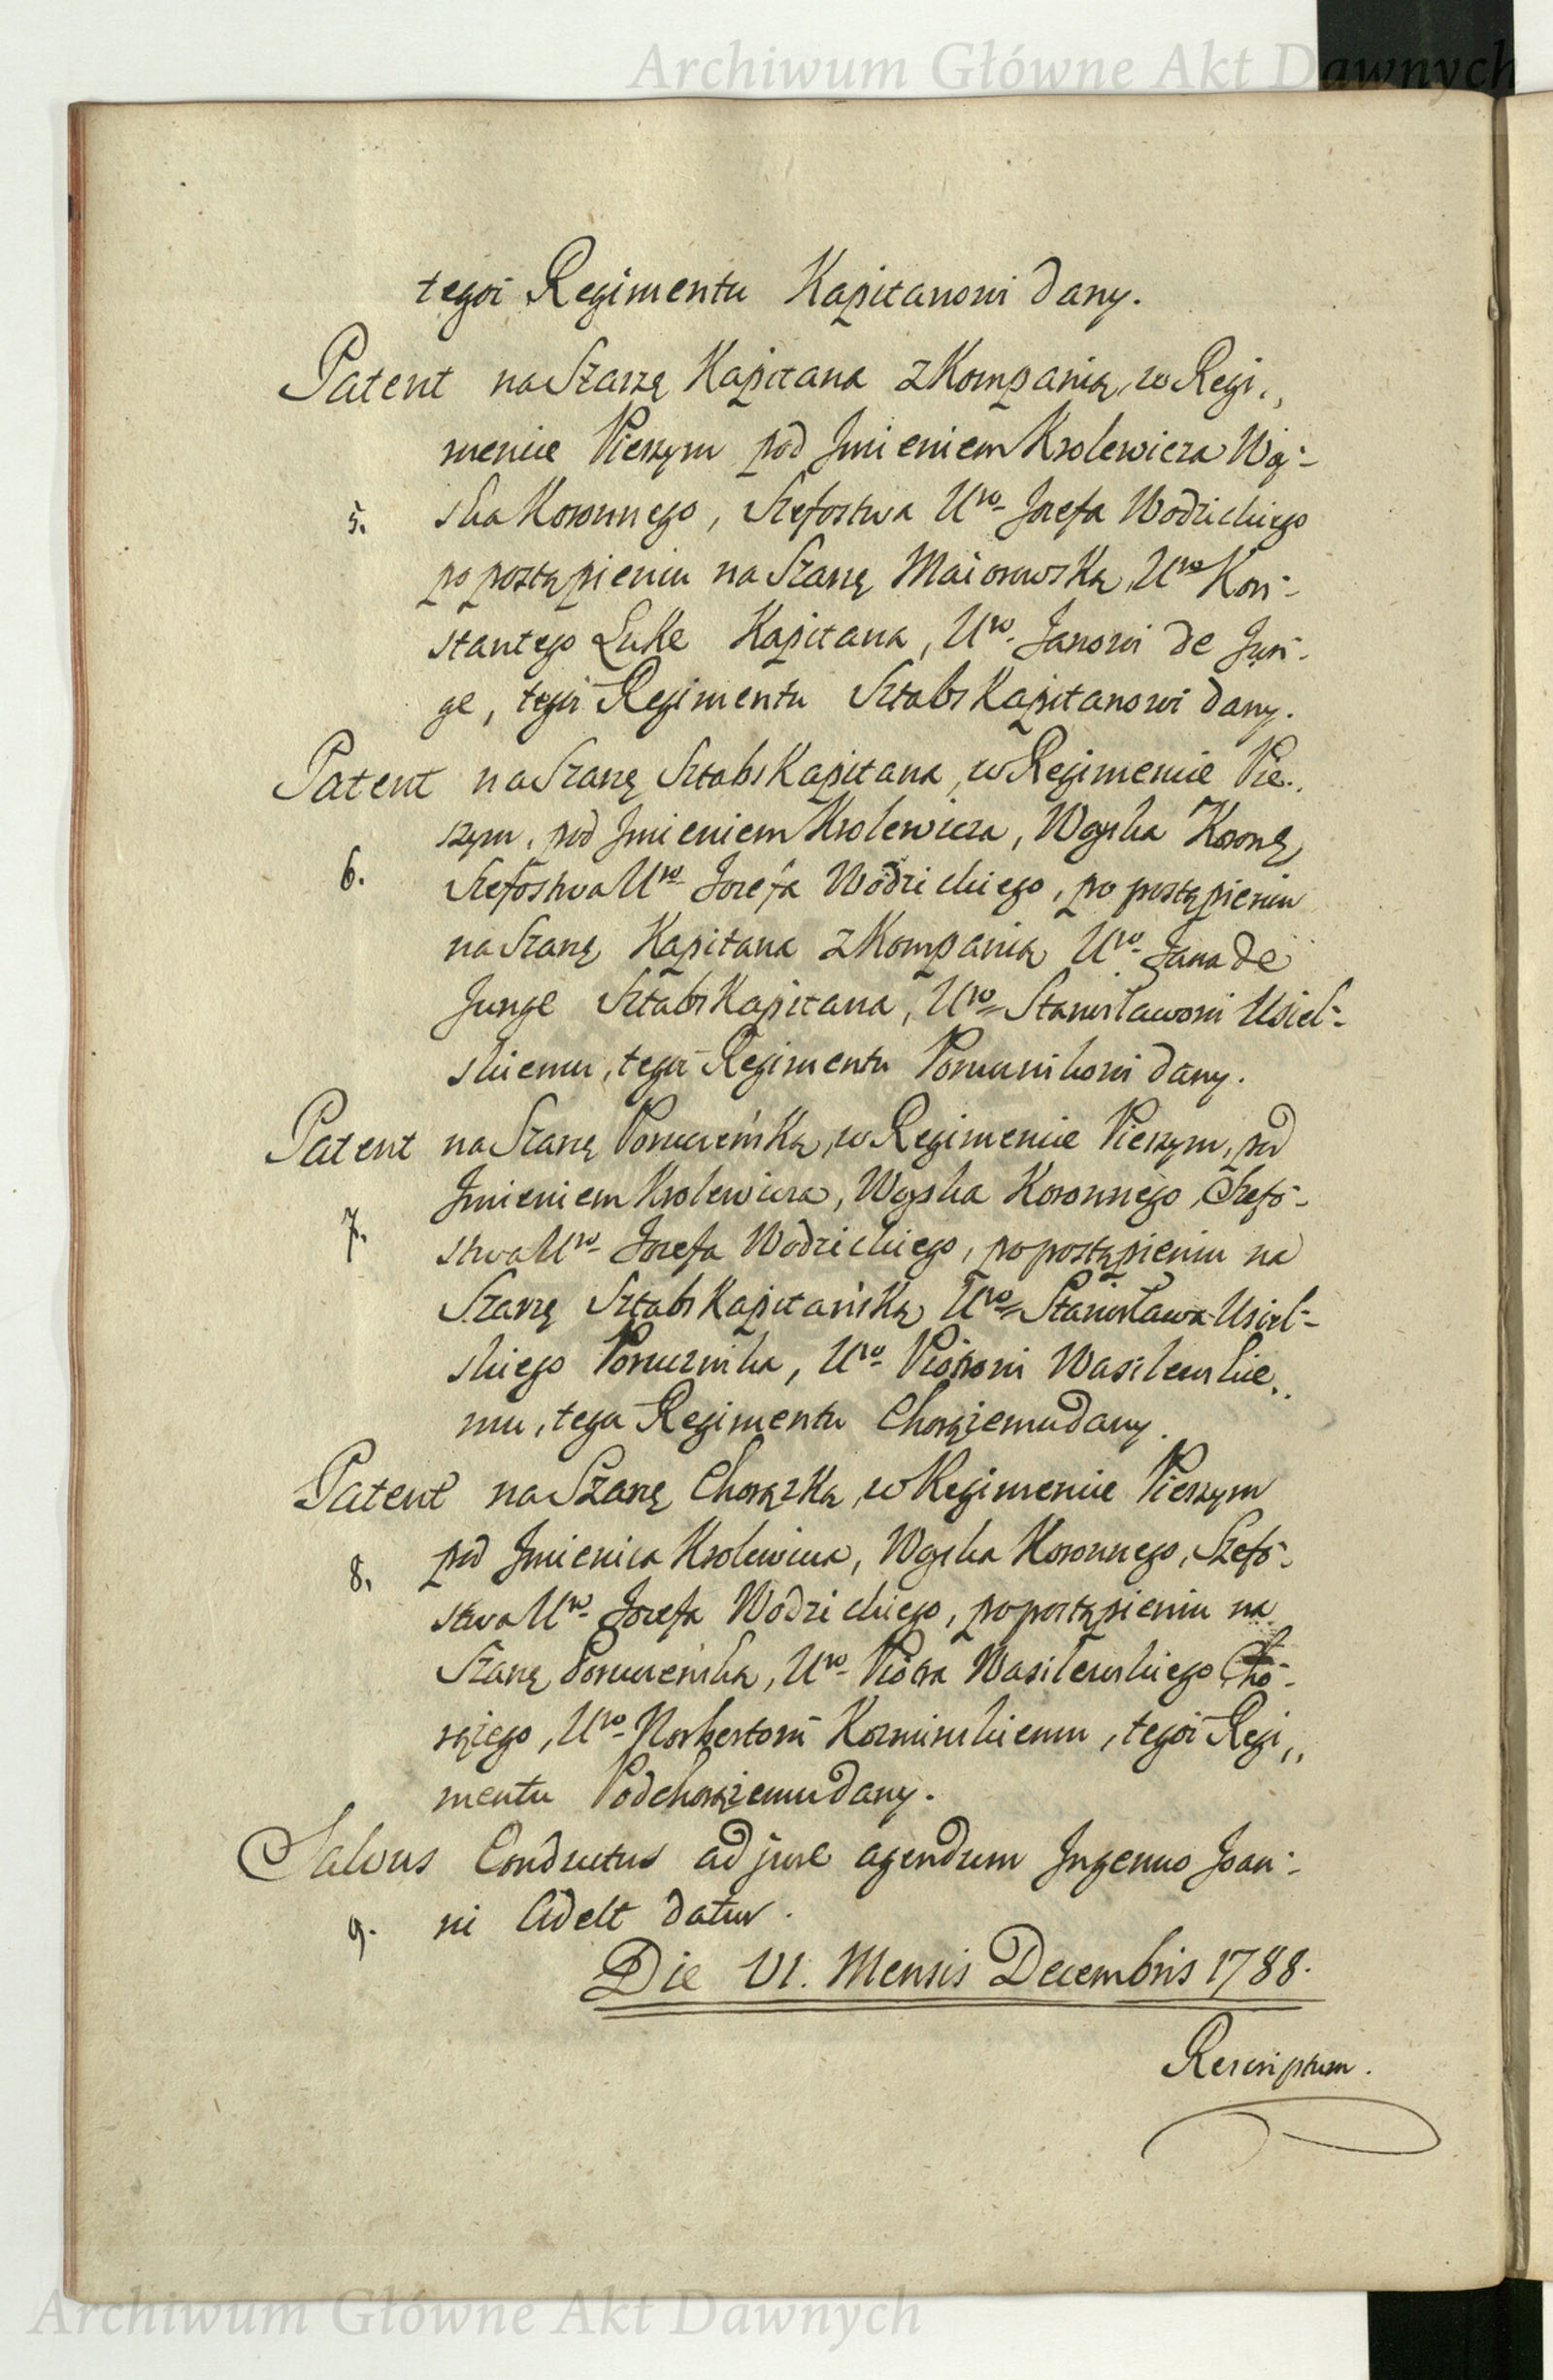 Archiwum Główne Akt Dawnych
tegoż Regimentu Kapitanowi dany.
Patent na Szarżę Kapitana z Kompanią, w Regi„
mencie Pieszym pod Jmieniem Krolewicza Woy-
5. ska Koronnego, Szefostwa Uro- Jozefa Wodzickiego
po postąpieniu na Szarżę Maiorowską, Uro Kon-
stantego Luke Kapitana, Uro- Janowi de Jun-
ge, tegoż Regimentu SztabsKapitanowi dany.
Patent na Szarżę SztabsKapitana, w Regimencie Pie„
szym, pod Jmieniem Krolewicza, Woyska Koronę,
6. Szefostwa Uro- Jozefa Wodzickiego, po postąpieniu
na Szarżę Kapitana z Kompanią Uro- Jana de
Junge SztabsKapitana, Uro= Stanisławowi Usiel-
skiemu, tegoż Regimentu Porucznikowi dany.
Patent na Szarżę Poruczeńską, w Regimencie Pieszym, pod
Jmieniem Krolewicza, Woyska Koronnego, Szefo-
7. stwa Uro- Jozefa Wodzickiego, po postąpieniu na
Szarżę SztabsKapitańską Uro= Stanisława Usiel-
skiego Porucznika, Uro- Piotrowi Wasilewskie„
mu, tegoż Regimentu Chorążemu dany.
Patent na Szarżę Chorążką, w Regimencie Pieszym
pod Jmienica Krolewicza, Woyska Koronnego, Szefo-
8. stwa Uro- Jozefa Wodzickiego, po postąpieniu na
Szarżę Poruczeńską, Uro- Piotra Wasilewskiego Cho-
rążego, Uro- Norbertowi Kozminskiemu, tegoż Regi„
mentu Podchorążemu dany.
Salvus Conductus ad jure agendum Ingenuo Joan-
9. ni Adelt datur.
Die VI. Mensis Decembris 1788.
Rescriptum.
Archiwum Główne Akt Dawnych